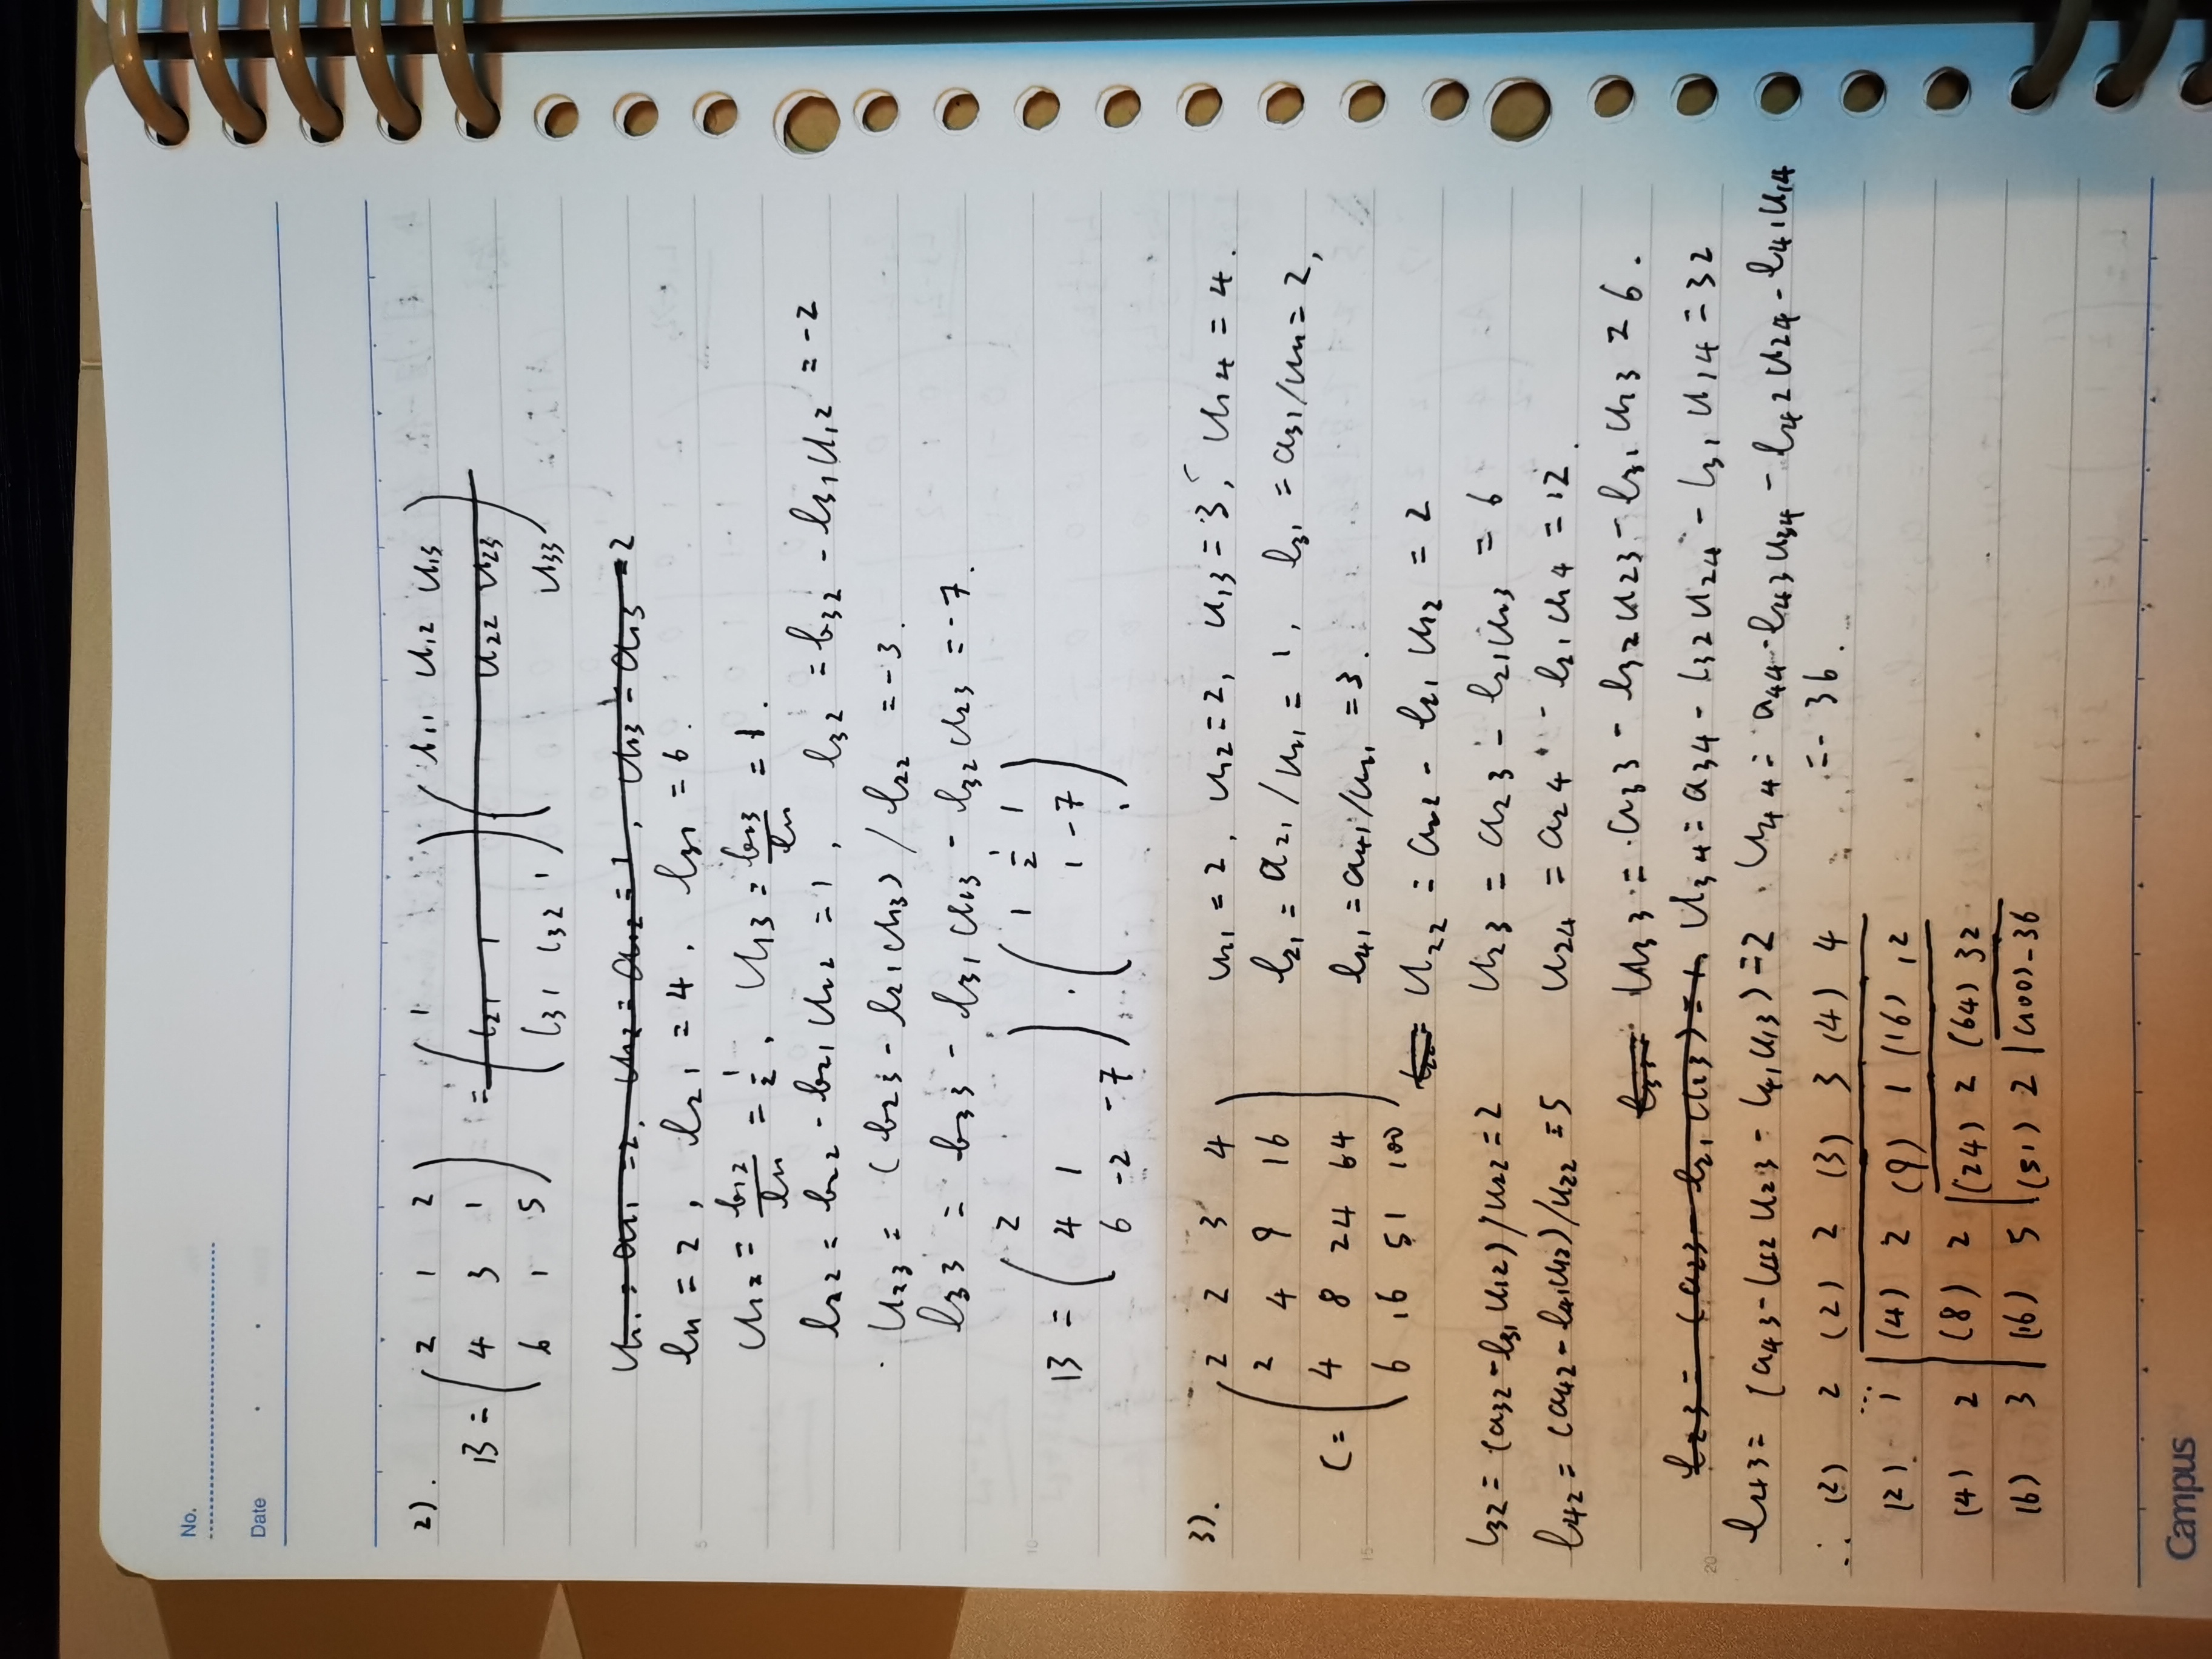 No.
Date
2).
B = ( 2 1 2
4 3 1
6 1 5 ) = ( 1
l21 1
l31 l32 1 ) ( u11 u12 u13
u22 u23
u33 )
l11 = 2, l21 = 4, l31 = 6.
u12 = b12/l11 = 1/2, u13 = b13/l11 = 1.
l22 = b22 - l21 u12 = 1, l32 = b32 - l31 u12 = -2
u23 = (b23 - l21 u13) / l22 = -3.
l33 = b33 - l31 u13 - l32 u23 = -7.
B = ( 2
4 1
6 -2 -7 ) . ( 1 1/2 1
1 -7
)
3).
C = ( 2 2 3 4
2 4 9 16
4 8 24 64
6 16 51 100 )
u11 = 2, u12 = 2, u13 = 3, u14 = 4.
l21 = a21/u11 = 1, l31 = a31/u11 = 2,
l41 = a41/u11 = 3.
u22 = a22 - l21 u12 = 2
l32 = (a32 - l31 u12)/u22 = 2 u23 = a23 - l21 u13 = 6
l42 = (a42 - l41 u12)/u22 = 5 u24 = a24 - l21 u14 = 12.
u33 = a33 - l32 u23 - l31 u13 = 6.
u34 = a34 - l32 u24 - l31 u14 = 32
l43 = (a43 - l42 u23 - l41 u13) = 2 . u44 = a44 - l43 u34 - l42 u24 - l41 u14
= -36.
∴ (2) 2 (2) 2 (3) 3 (4) 4
(2) 1 (4) 2 (9) 1 (16) 12
(4) 2 (8) 2 (24) 2 (64) 32
(6) 3 (16) 5 (51) 2 (100) -36
Campus